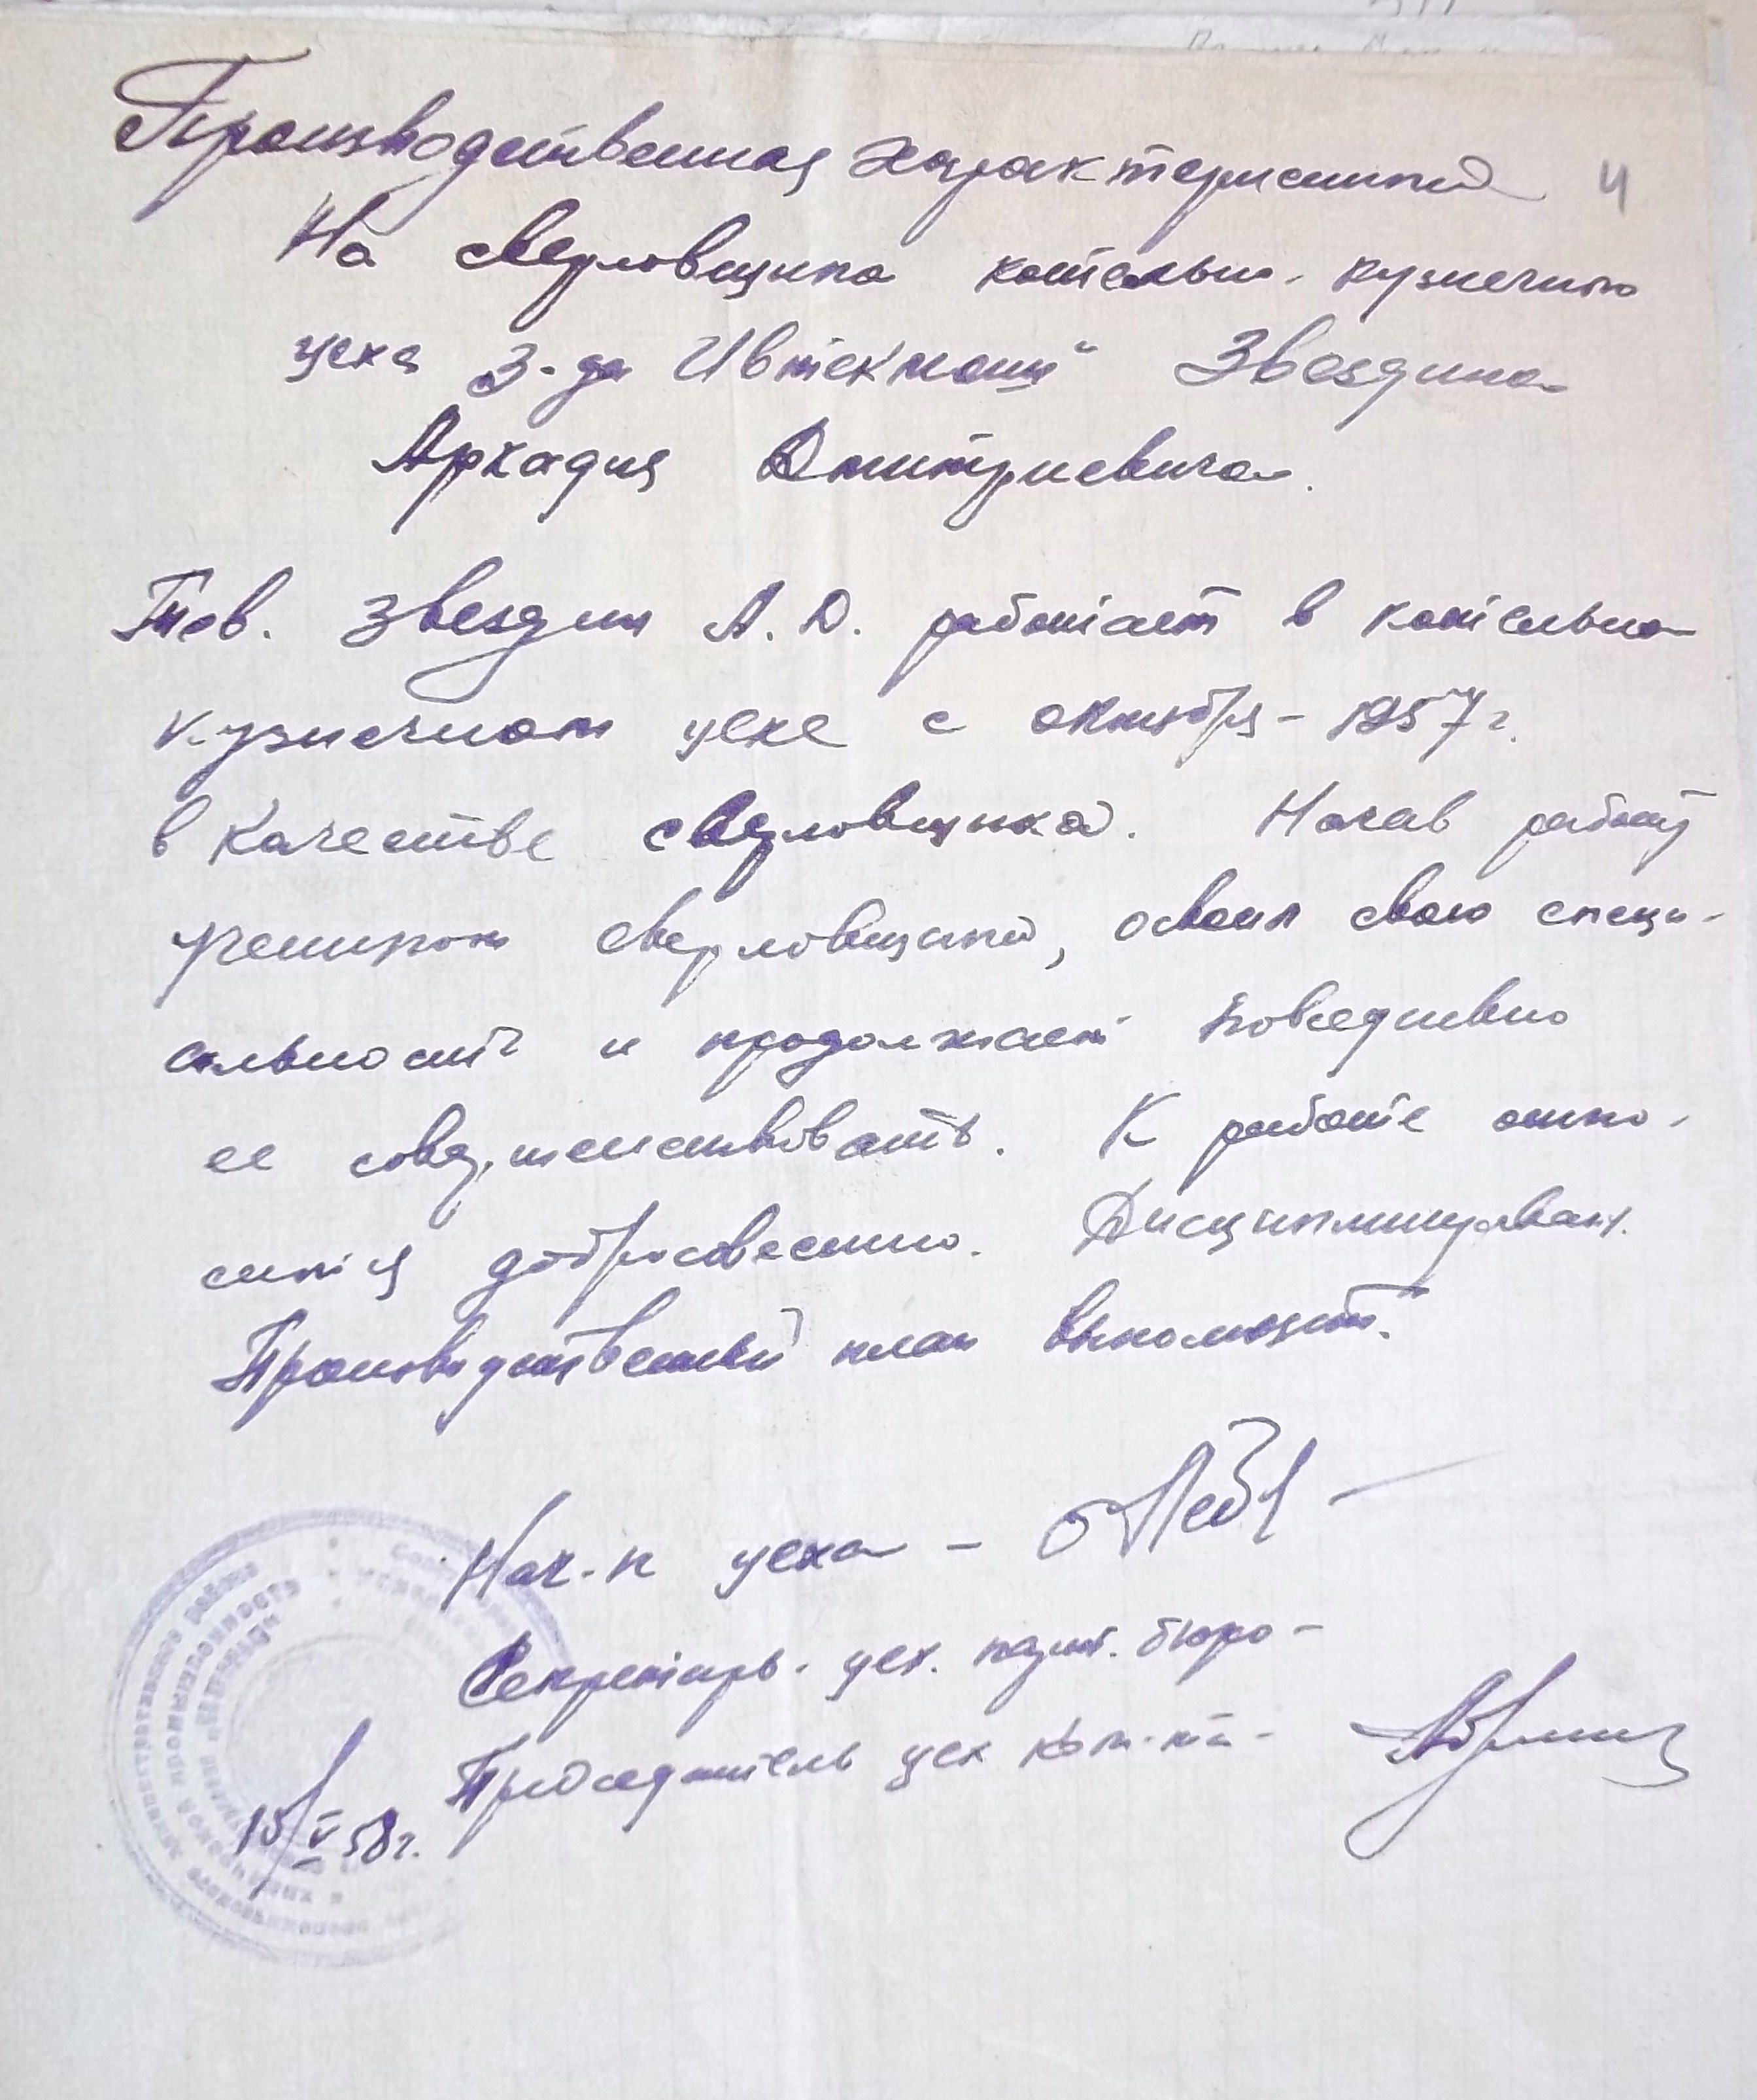 Производственная характеристика 4
На сверловщика котельно-кузнечного
цеха З-да Ивтекмаш" Звездина
Аркадия Дмитриевича.
Тов. Звездин А.Д. работает в котельно
кузнечном цехе с октября - 1957 г.
в качестве сверловщика. Начав работу
учеником сверловщика, освоил свою специ-
альность и продолжает повседневно
ее совершенствовать. К работе отно-
сится добросовестно. Дисциплинирован.
Производственный план выполняет.
Нач-к цеха -
Секретарь цех. парт. бюро -
Председатель цех ком-та -
15/V 58 г.